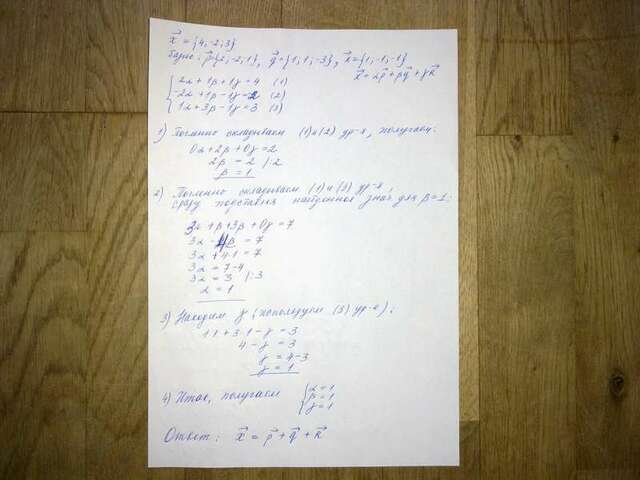 x⃗ = {4; -2; 3}
Базис: p⃗{2; -2; 1}, q⃗ = {1; 1; -3}, r⃗ = {1; -1; -1}
x⃗ = αp⃗ + βq⃗ + γr⃗
2α + 1β + 1γ = 4 (1)
-2α + 1β - 1γ = -2 (2)
1α + 3β - 1γ = 3 (3)
1) Почленно складываем (1) и (2) ур-я, получаем:
0α + 2β + 0γ = 2
2β = 2 / :2
β = 1
2) Почленно складываем (1) и (3) ур-я,
сразу подставив найденное знач для β = 1:
3α + β + 3β + 0γ = 7
3α + 4β = 7
3α + 4·1 = 7
3α = 7 - 4
3α = 3 / :3
α = 1
3) Находим γ (используем (3) ур-е):
1·1 + 3·1 - γ = 3
4 - γ = 3
γ = 4 - 3
γ = 1
4) Итог, получаем
α = 1
β = 1
γ = 1
Ответ: x⃗ = p⃗ + q⃗ + r⃗